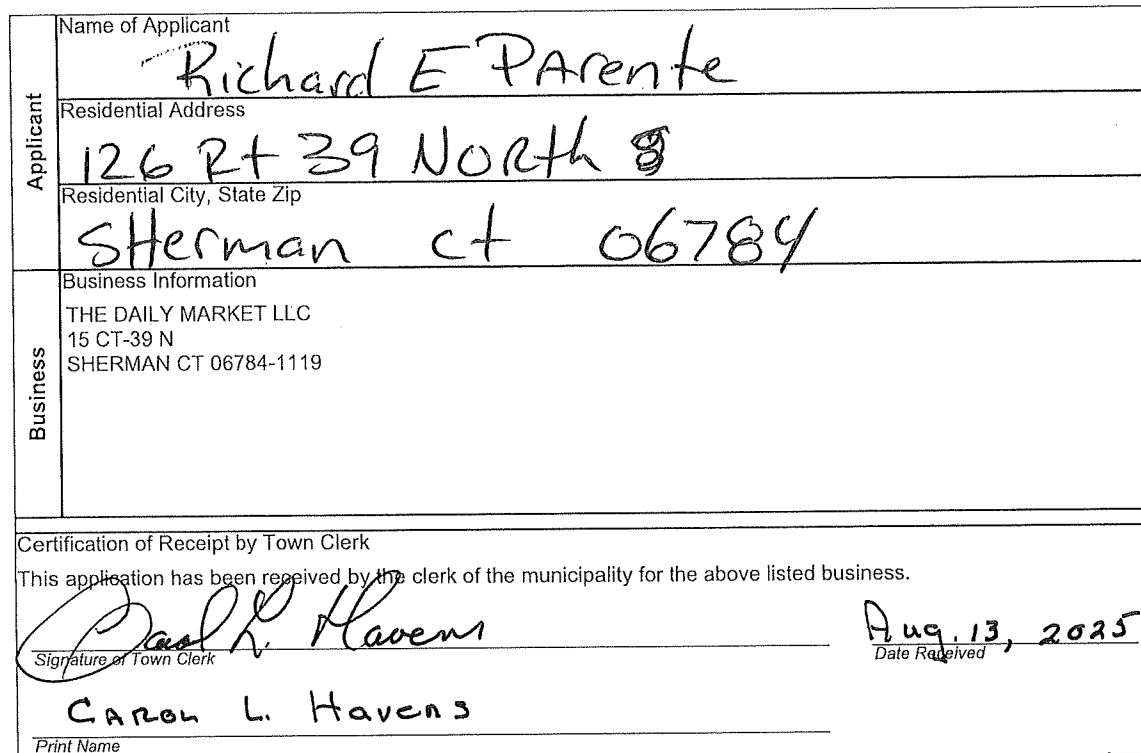 Name of Applicant
Richard E PArente
Applicant
Residential Address
126 Rt 39 NORth
Residential City, State Zip
SHerman ct 06784
Business Information
Business
THE DAILY MARKET LLC
15 CT-39 N
SHERMAN CT 06784-1119
Certification of Receipt by Town Clerk
This application has been received by the clerk of the municipality for the above listed business.
Carol L. Havens Aug. 13, 2025
Signature of Town Clerk Date Received
CAROL L. Havens
Print Name